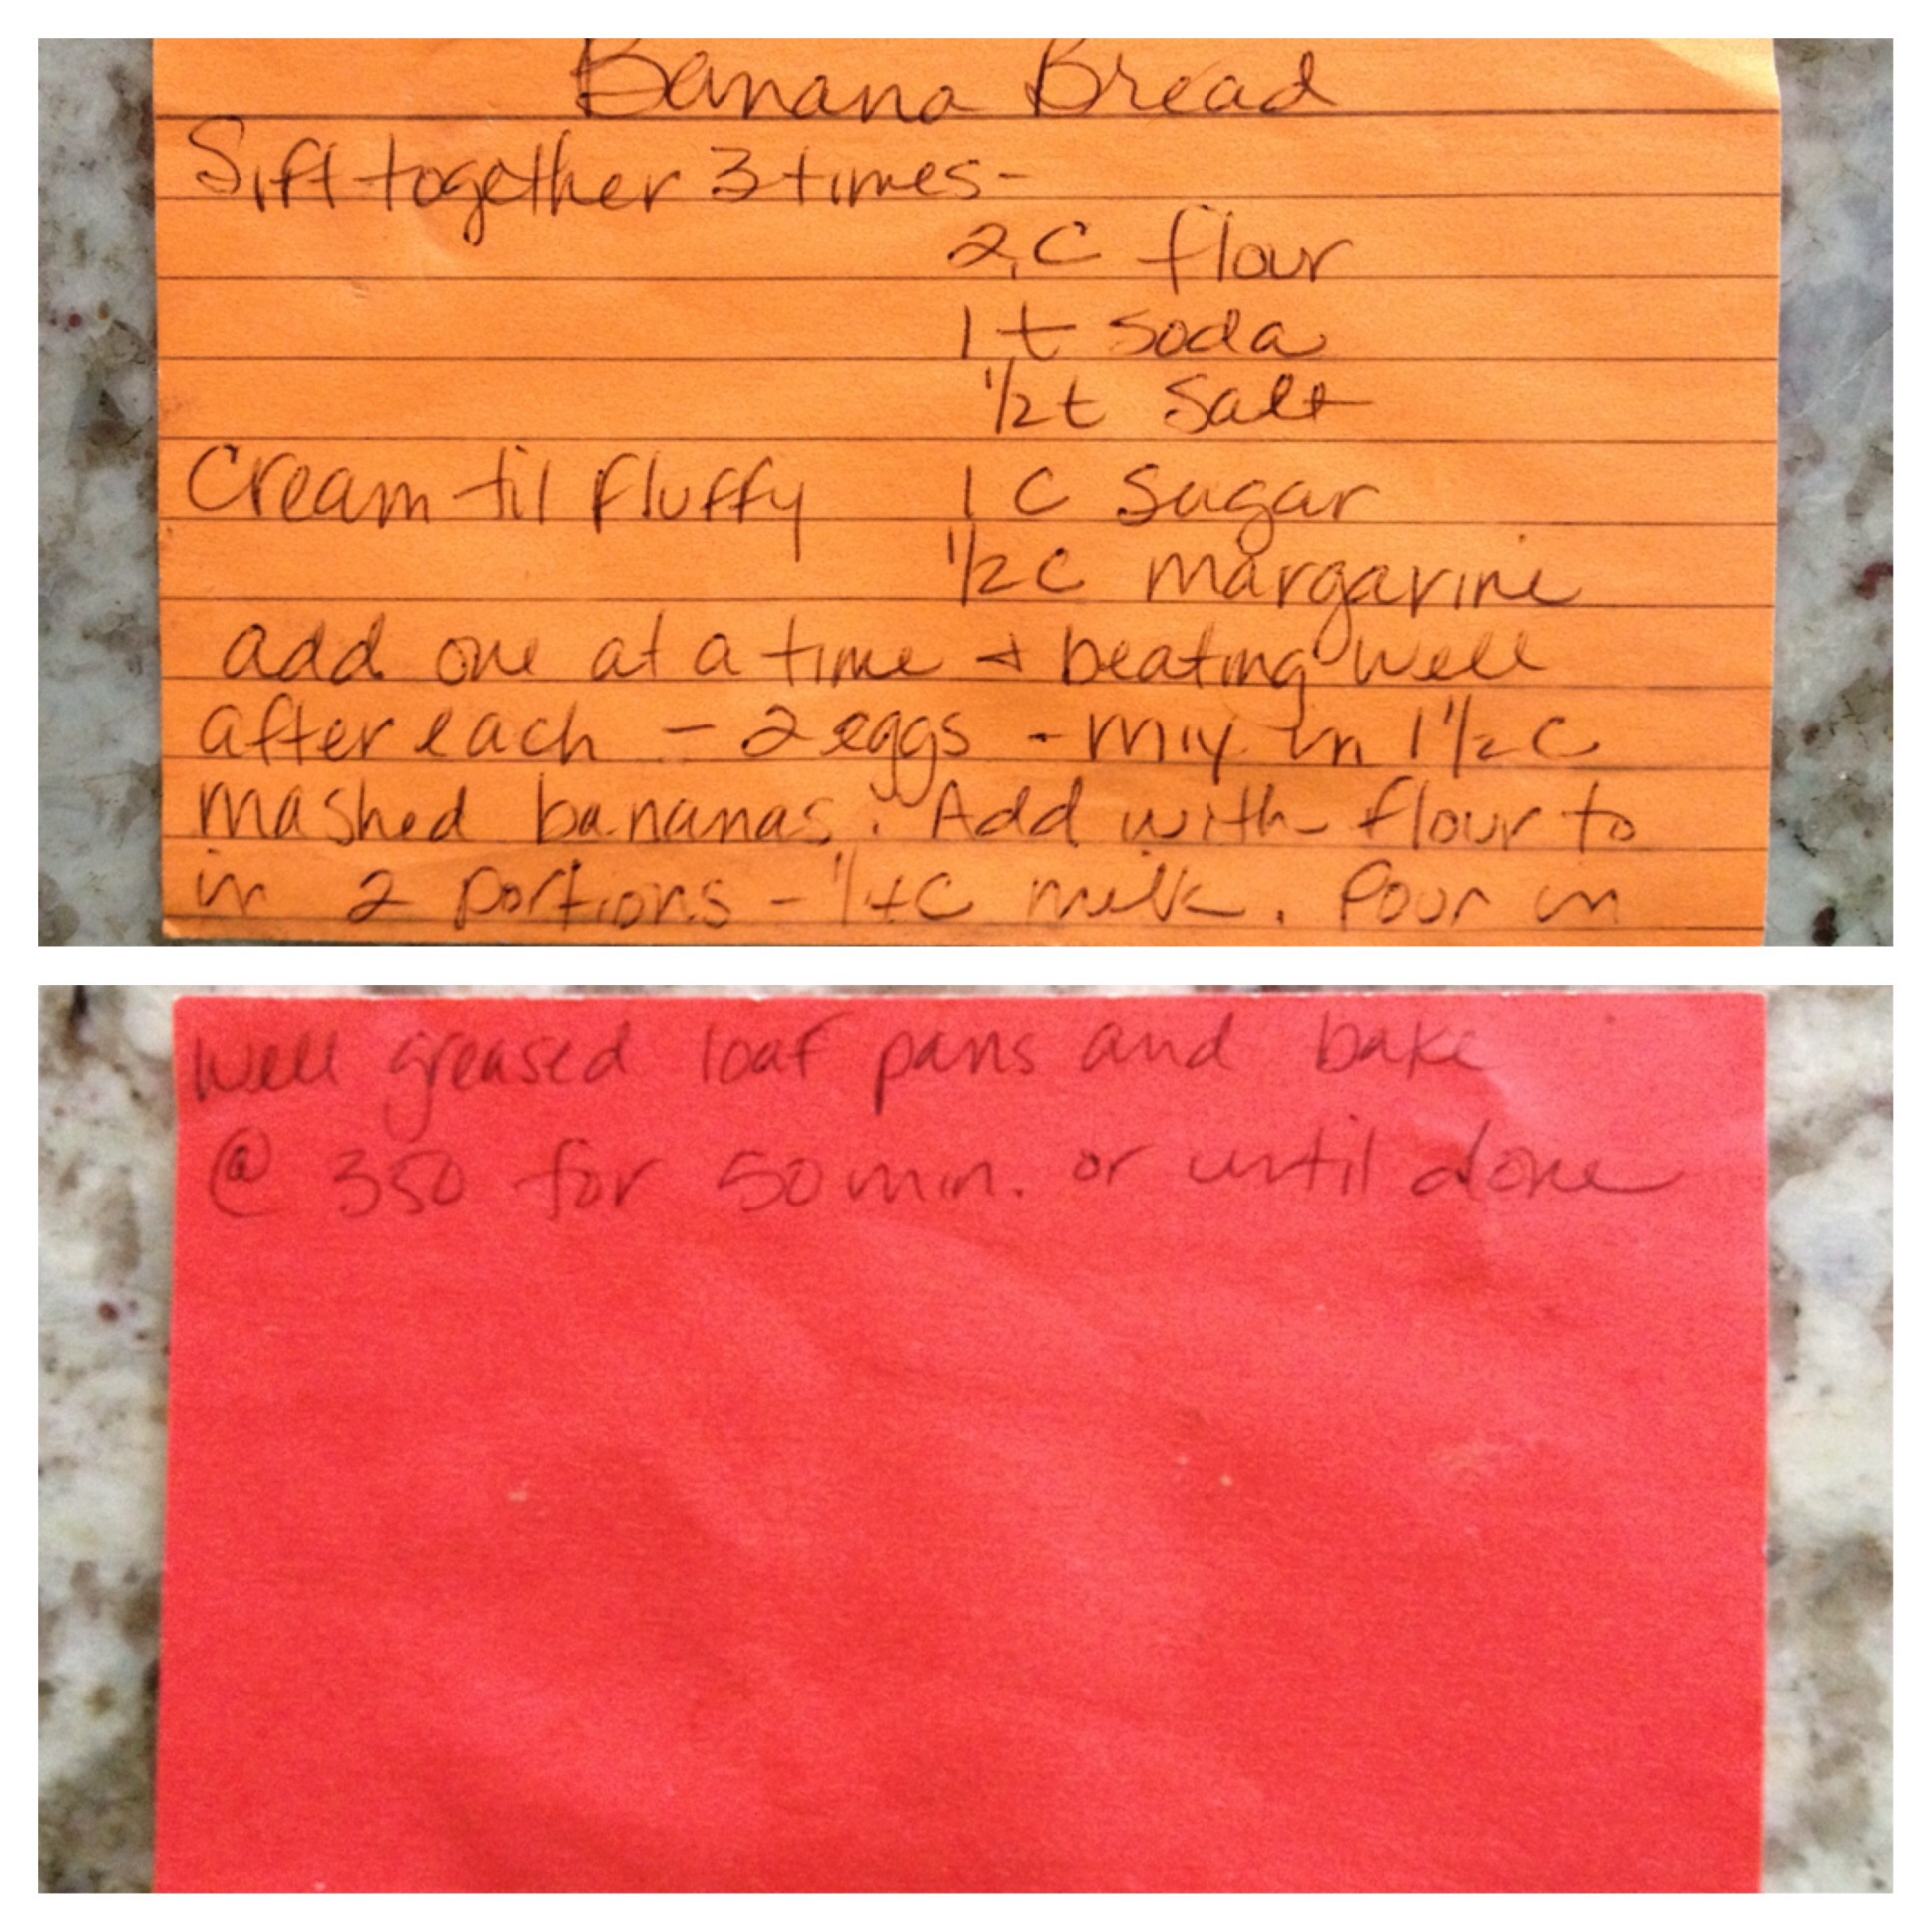 Banana Bread
Sift together 3 times-
2 C flour
1 t soda
1/2 t Salt
Cream til fluffy 1 C Sugar
1/2 C margarine
add one at a time & beating well
after each - 2 eggs - mix in 1 1/2 C
mashed bananas. Add with flour to
in 2 portions - 1/4 C milk. Pour in
Well greased loaf pans and bake
@ 350 for 50 min. or until done